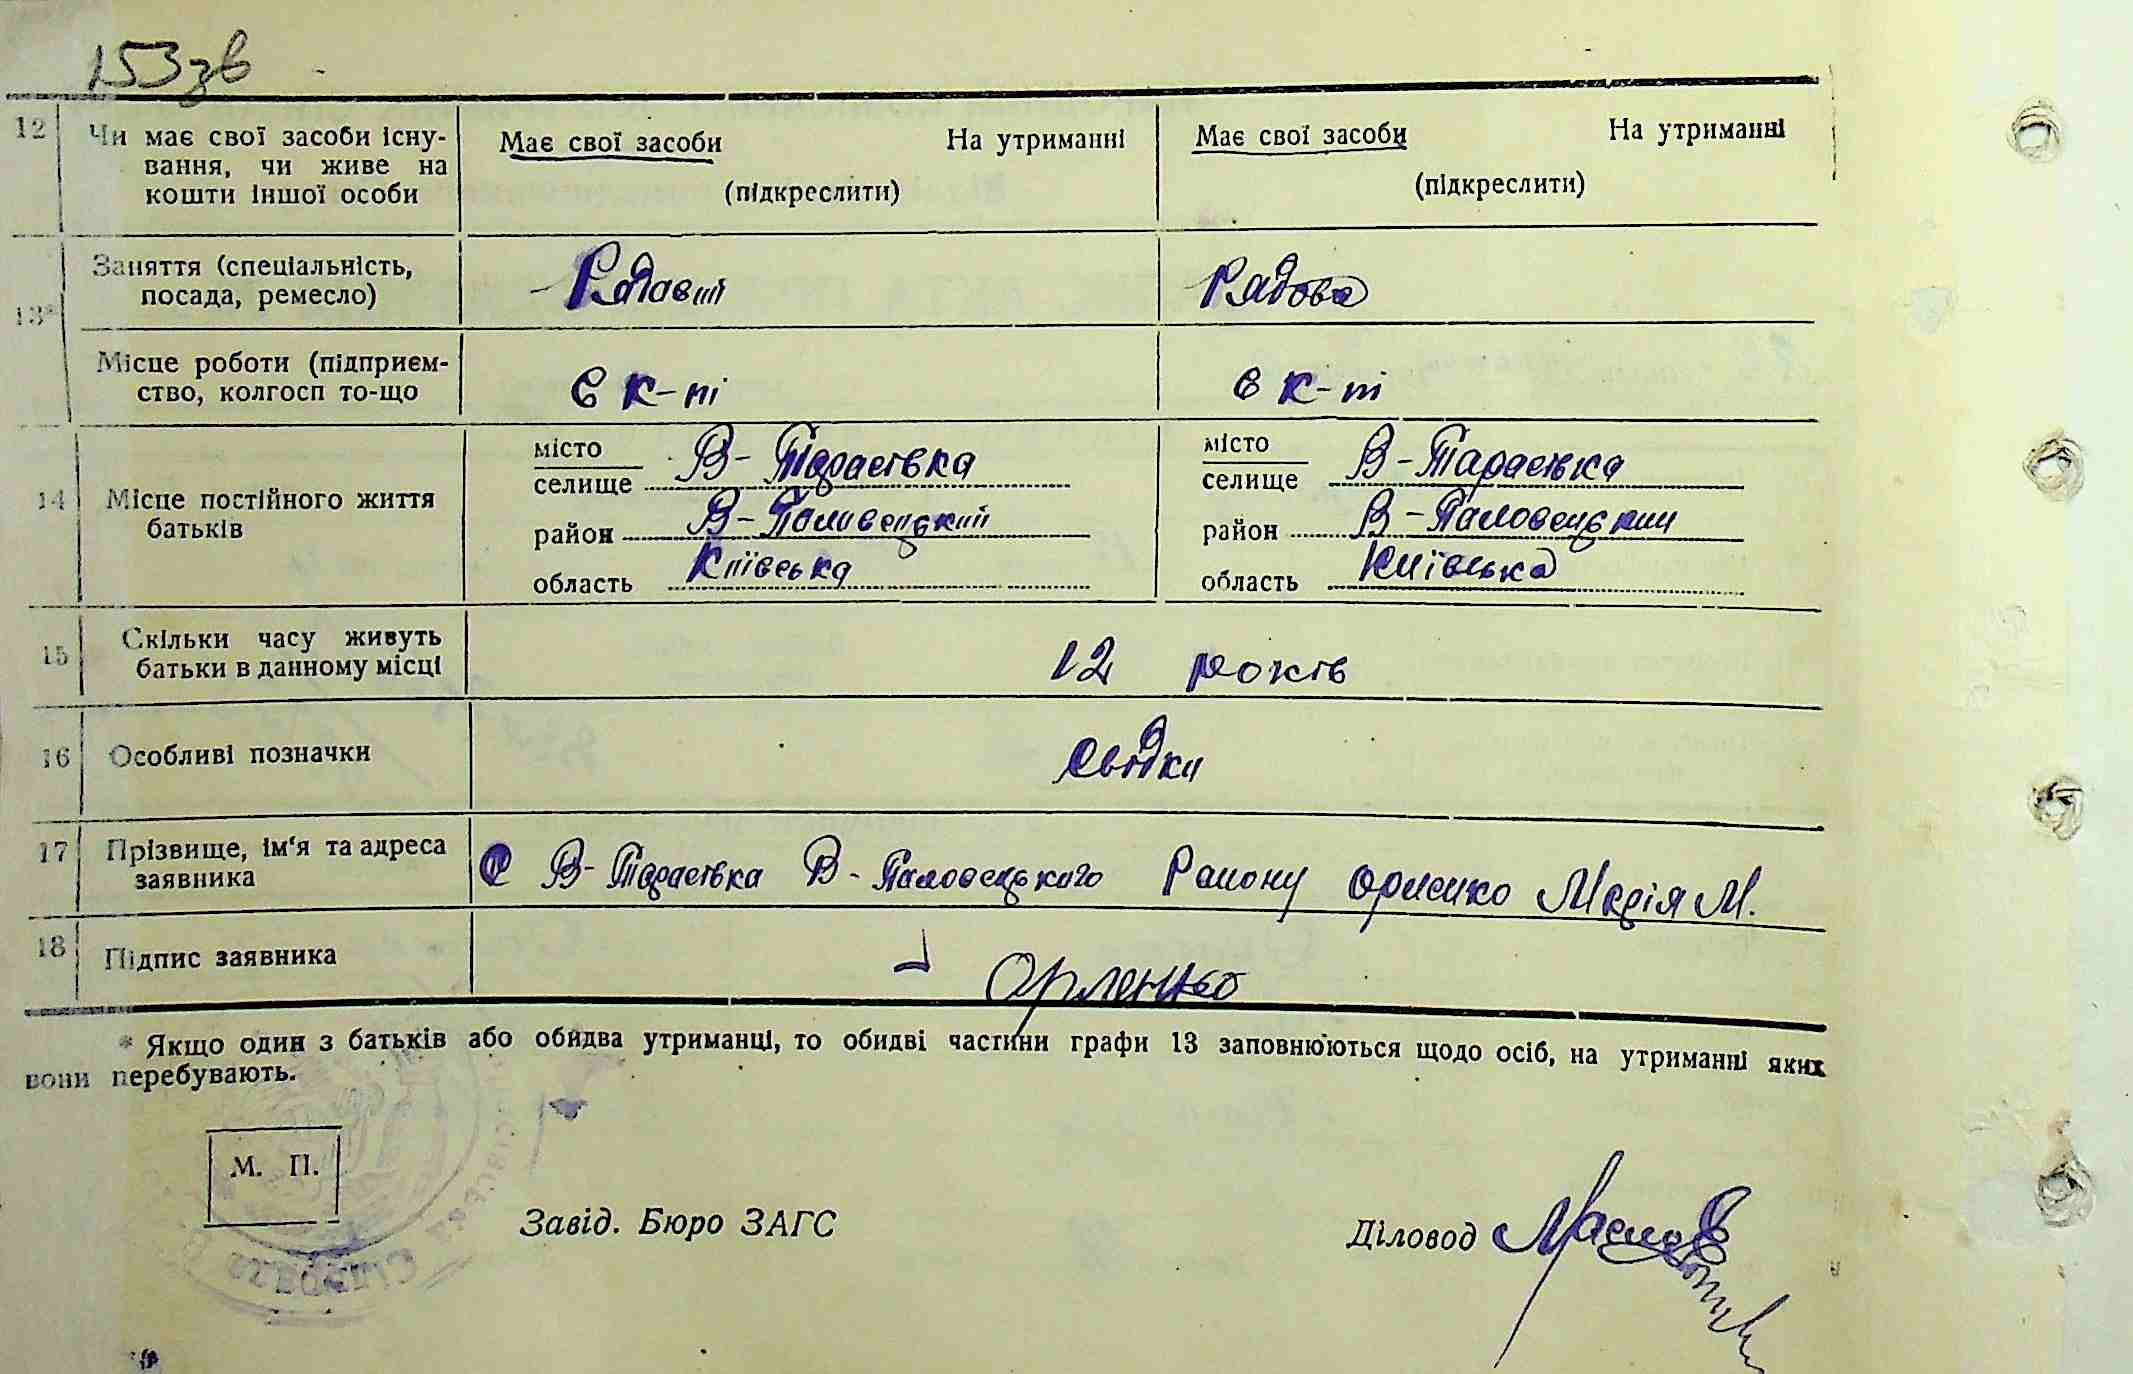 153зв
12 Чи має свої засоби існу- Має свої засоби На утриманні Має свої засоби На утриманні
вання, чи живе на
кошти іншої особи (підкреслити) (підкреслити)
13* Заняття (спеціальність, Рядовий Рядова
посада, ремесло)
Місце роботи (підприєм- в к-пі в к-пі
ство, колгосп то-що
14 Місце постійного життя
батьків
місто В-Тарасівка місто В-Тарасівка
селище селище
район В-Половецький район В-Половецький
область Київська область Київська
15 Скільки часу живуть 12 років
батьки в данному місці
16 Особливі позначки Свідки
17 Прізвище, ім'я та адреса С В-Тарасівка В-Половецького Району Орленко Марія М.
заявника
18 Підпис заявника Орленко
* Якщо один з батьків або обидва утриманці, то обидві частини графи 13 заповнюються щодо осіб, на утриманні яких
вони перебувають.
М. П.
Завід. Бюро ЗАГС Діловод